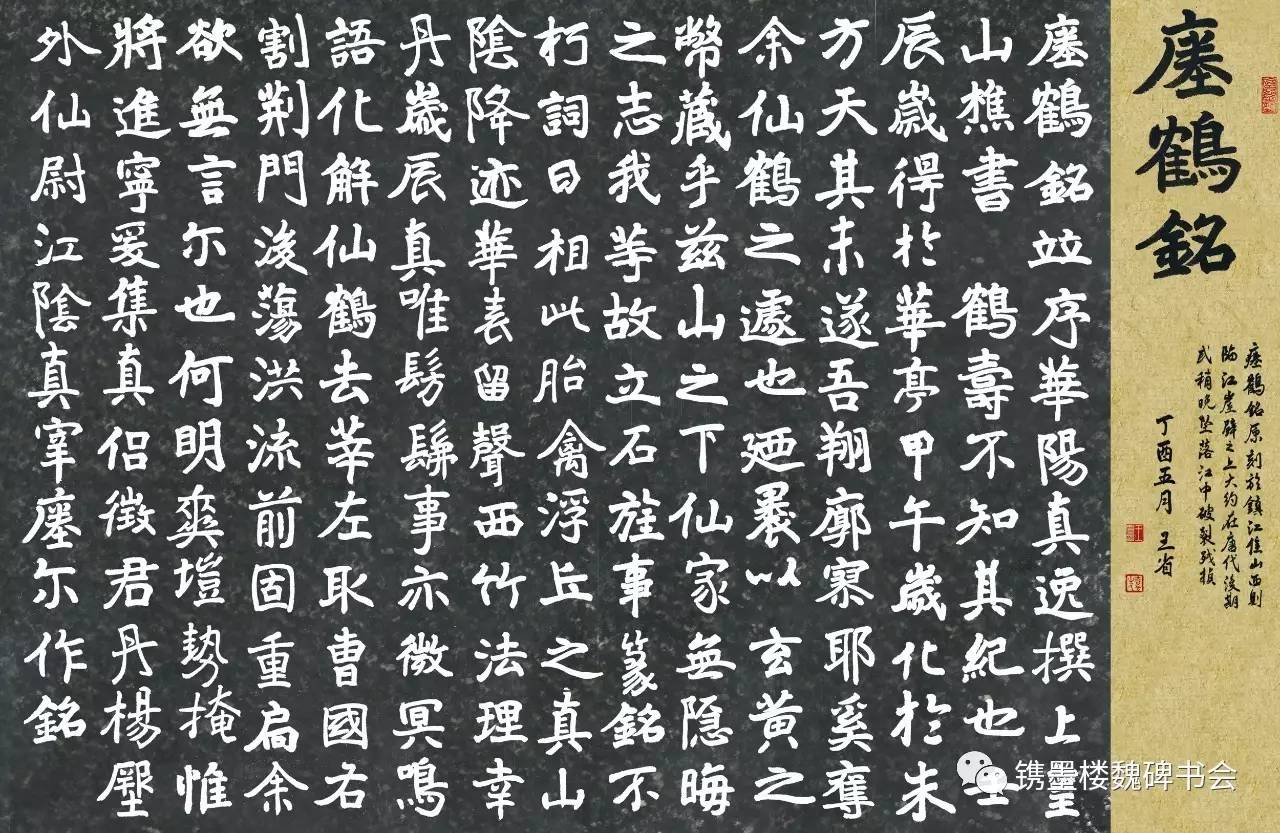 瘞鶴銘
瘞鶴銘原刻於鎮江焦山西側
臨江崖壁之上大約在唐代後期
或稍晚墜落江中破裂残損
丁酉五月 王省
瘞鶴銘竝序華陽真逸撰上皇
山樵書 鶴壽不知其紀也壬
辰歲得於華亭甲午歲化於朱
方天其未遂吾翔廓寥耶奚奪
余仙鶴之遽也廼裹以玄黄之
幣藏乎兹山之下仙家無隱晦
之志我等故立石旌事篆銘不
朽詞曰相此胎禽浮丘之真山
陰降迹華表留聲西竹法理幸
丹歲辰真唯髣髴事亦微冥鳴
語化解仙鶴去莘左取曹國右
割荆門後蕩洪流前固重扃余
欲無言尒也何明爽塏勢掩惟
將進寧爰集真侶徵君丹楊壓
外仙尉江陰真宰瘞尒作銘
镌墨楼魏碑书会